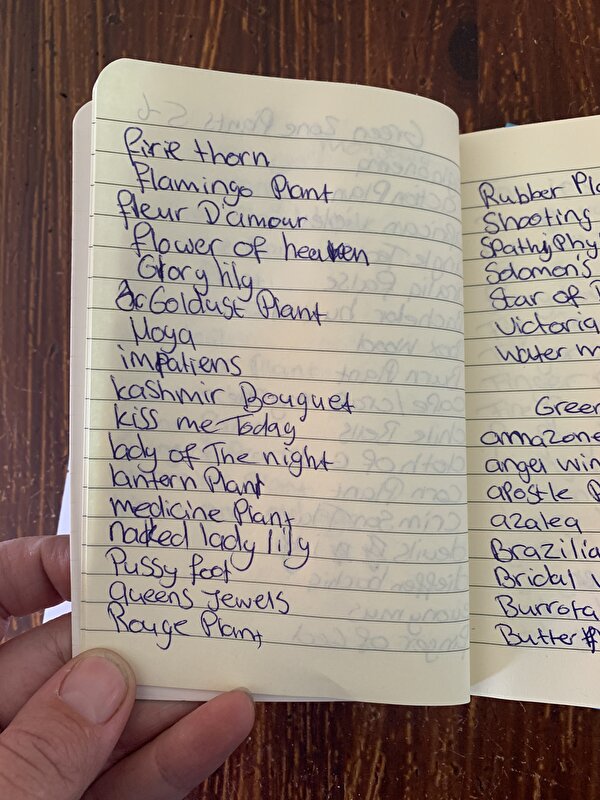 firie thorn
flamingo Plant
fleur D'amour
flower of heaven
Glory lily
Goldust Plant
Hoya
impatiens
kashmir Bouquet
kiss me Today
lady of The night
lantern Plant
medicine Plant
naked lady lily
Pussy foot
queens Jewels
Rouge Plant
Rubber Pla
Shooting
Spathiphy
Solomon's
Star of
Victoria
water m
Green
amazone
angel win
apostle P
azalea
Brazilia
Bridal
Burrota
Butter